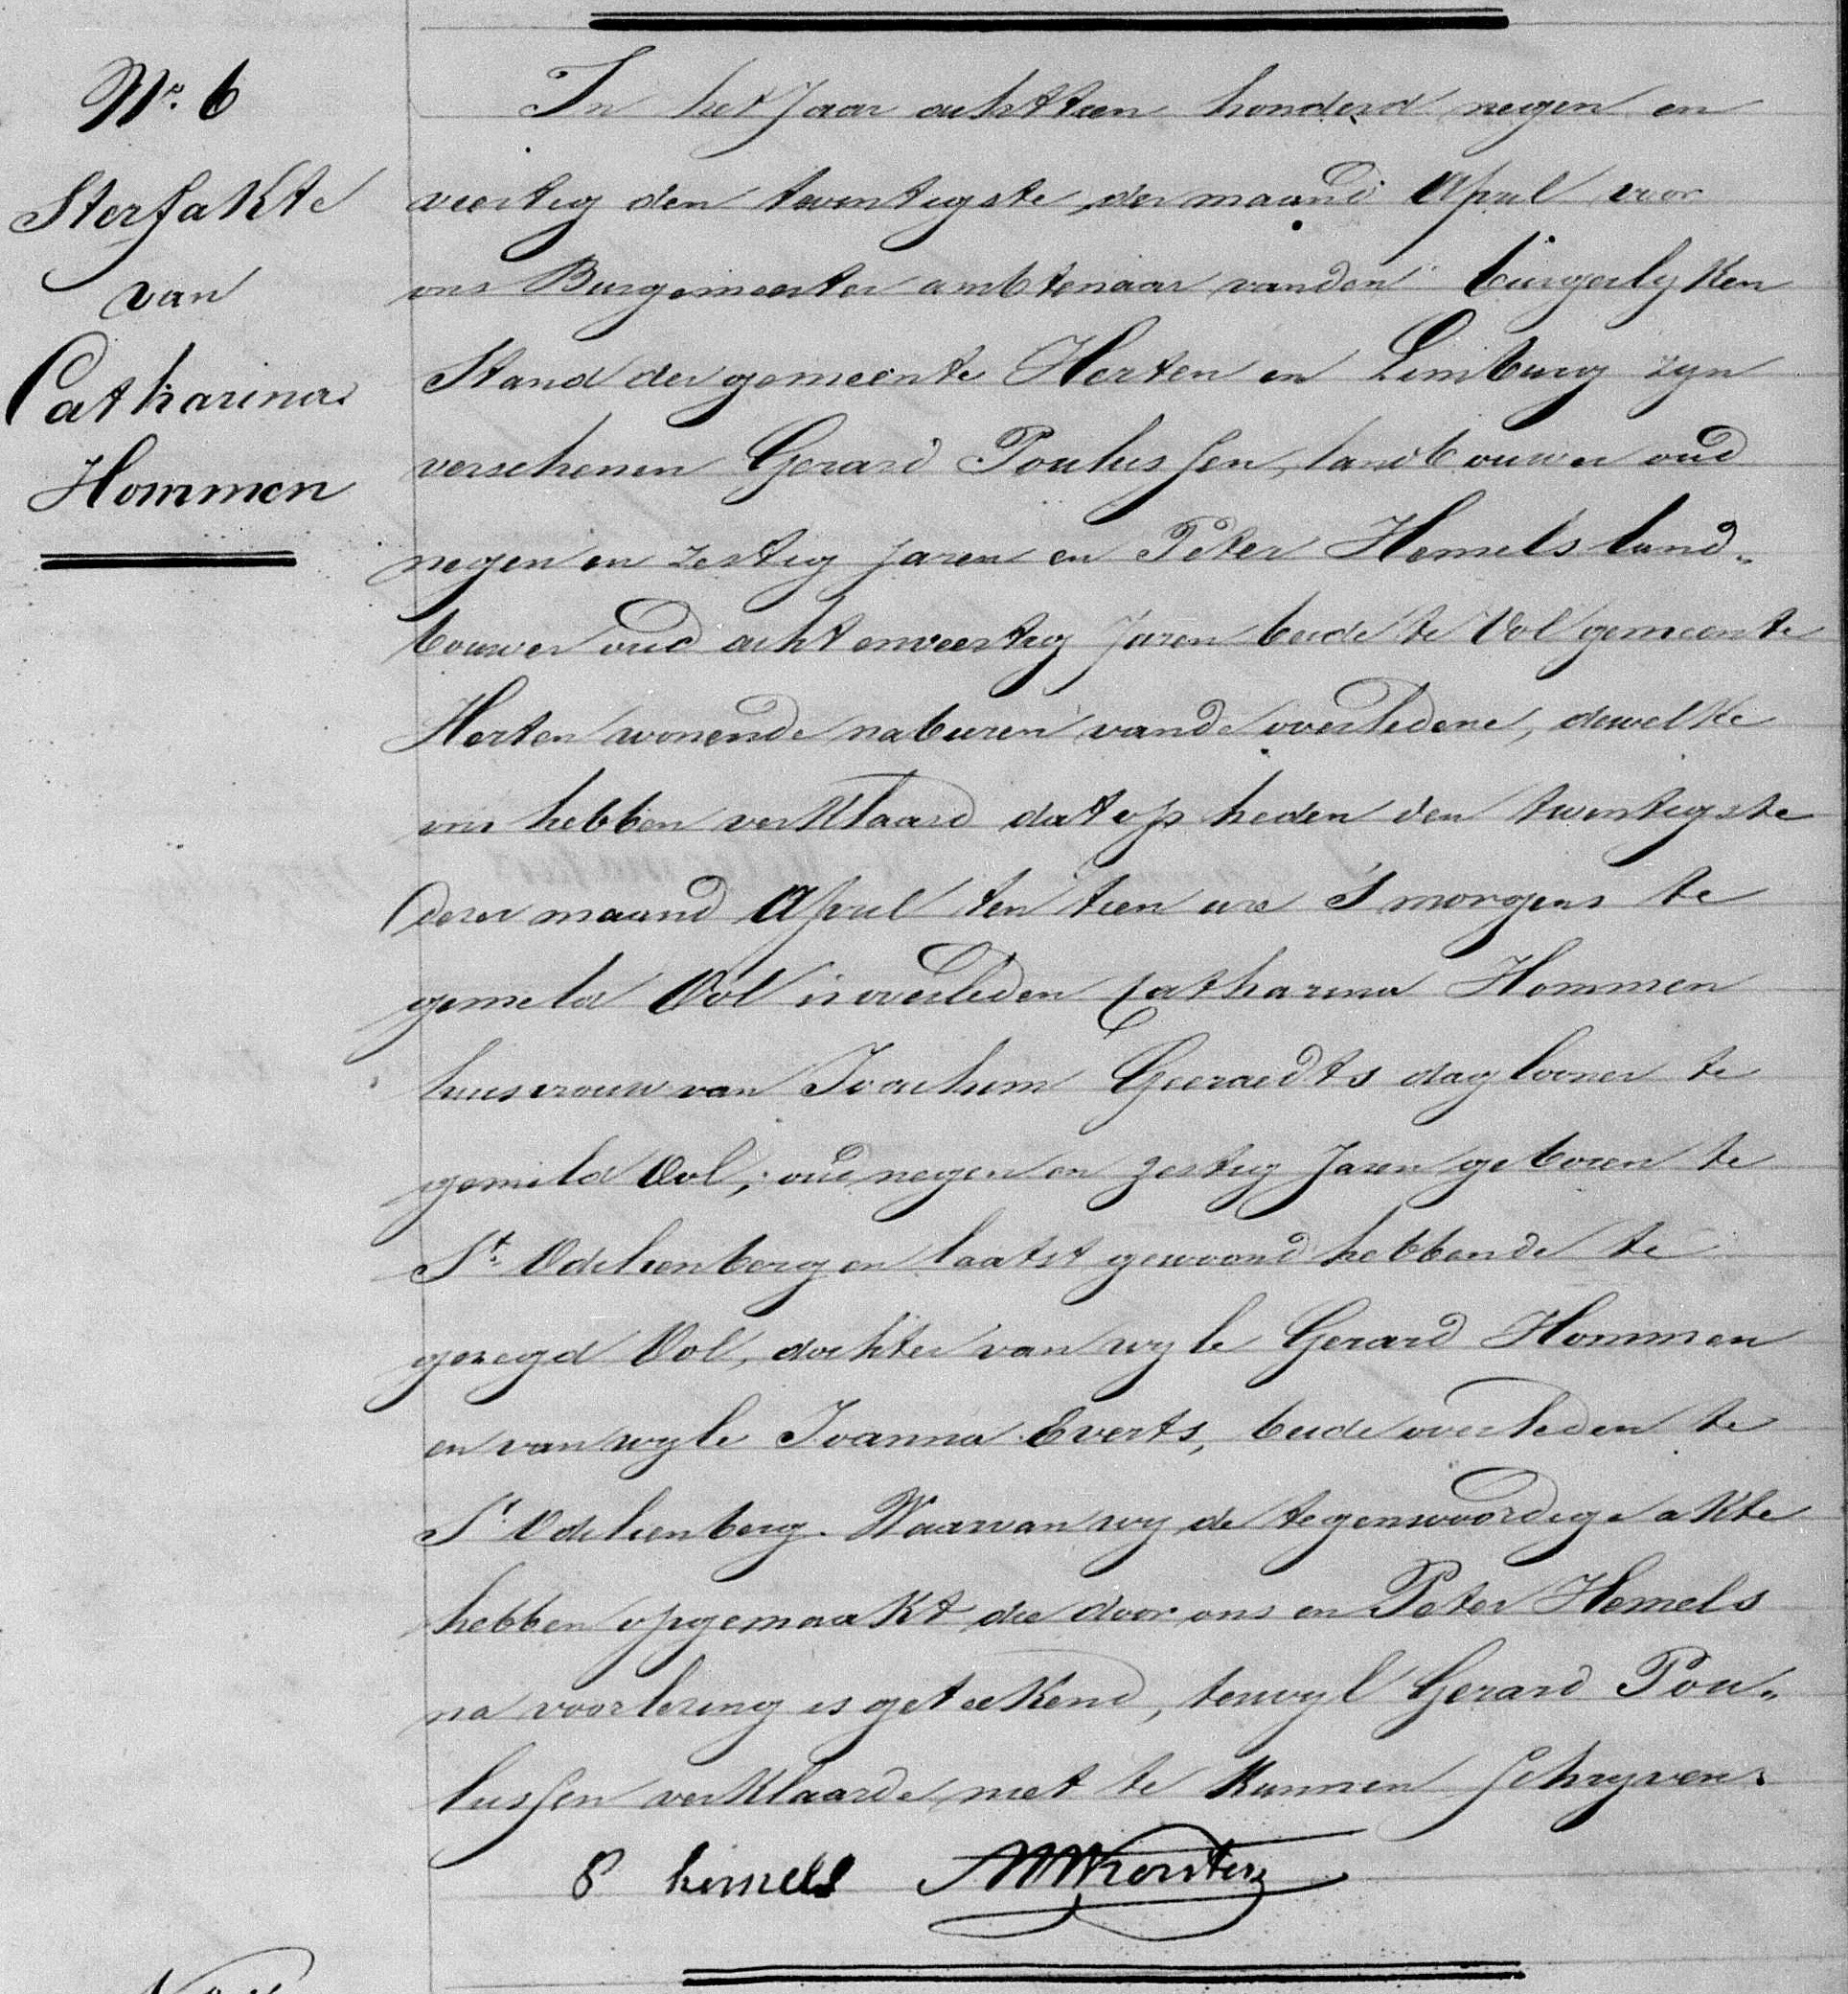 Nr. 6
Sterfakte
van
Catharina
Hommen
In het jaar achttien honderd negen en
veertig den twentigste der maand April voor
ons Burgemeester ambtenaar vanden burgerlyken
Stand der gemeente Herten en Limburg zyn
verschenen Gerard Poulussen, landbouwer oud
negen en zestig jaren en Peter Hemels land„
bouwer oud acht enveertig jaren beide te Ool gemeente
Herten wonende naburen vande overledene, dewelke
ons hebben verklaard dat op heden den twentigste
dezer maand April ten tien ure s'morgens te
gemeld Ool is overleden Catharina Hommen
huisvrouw van Joachim Geeraedts daglooner te
gemeld Ool, oud negen en zestig jaren geboren te
St. Odilienberg en laatst gewoond hebbende te
gezegd Ool, dochter van wyle Gerard Hommen
en van wyle Joanna Everts, beide overleden te
St. Odilienberg. Waarvan wy de tegenwoordige akte
hebben opgemaakt die door ons en Peter Hemels
na voorlezing is geteekend, terwyl Gerard Pou„
lussen verklaarde niet te kunnen schryven.
P hemels